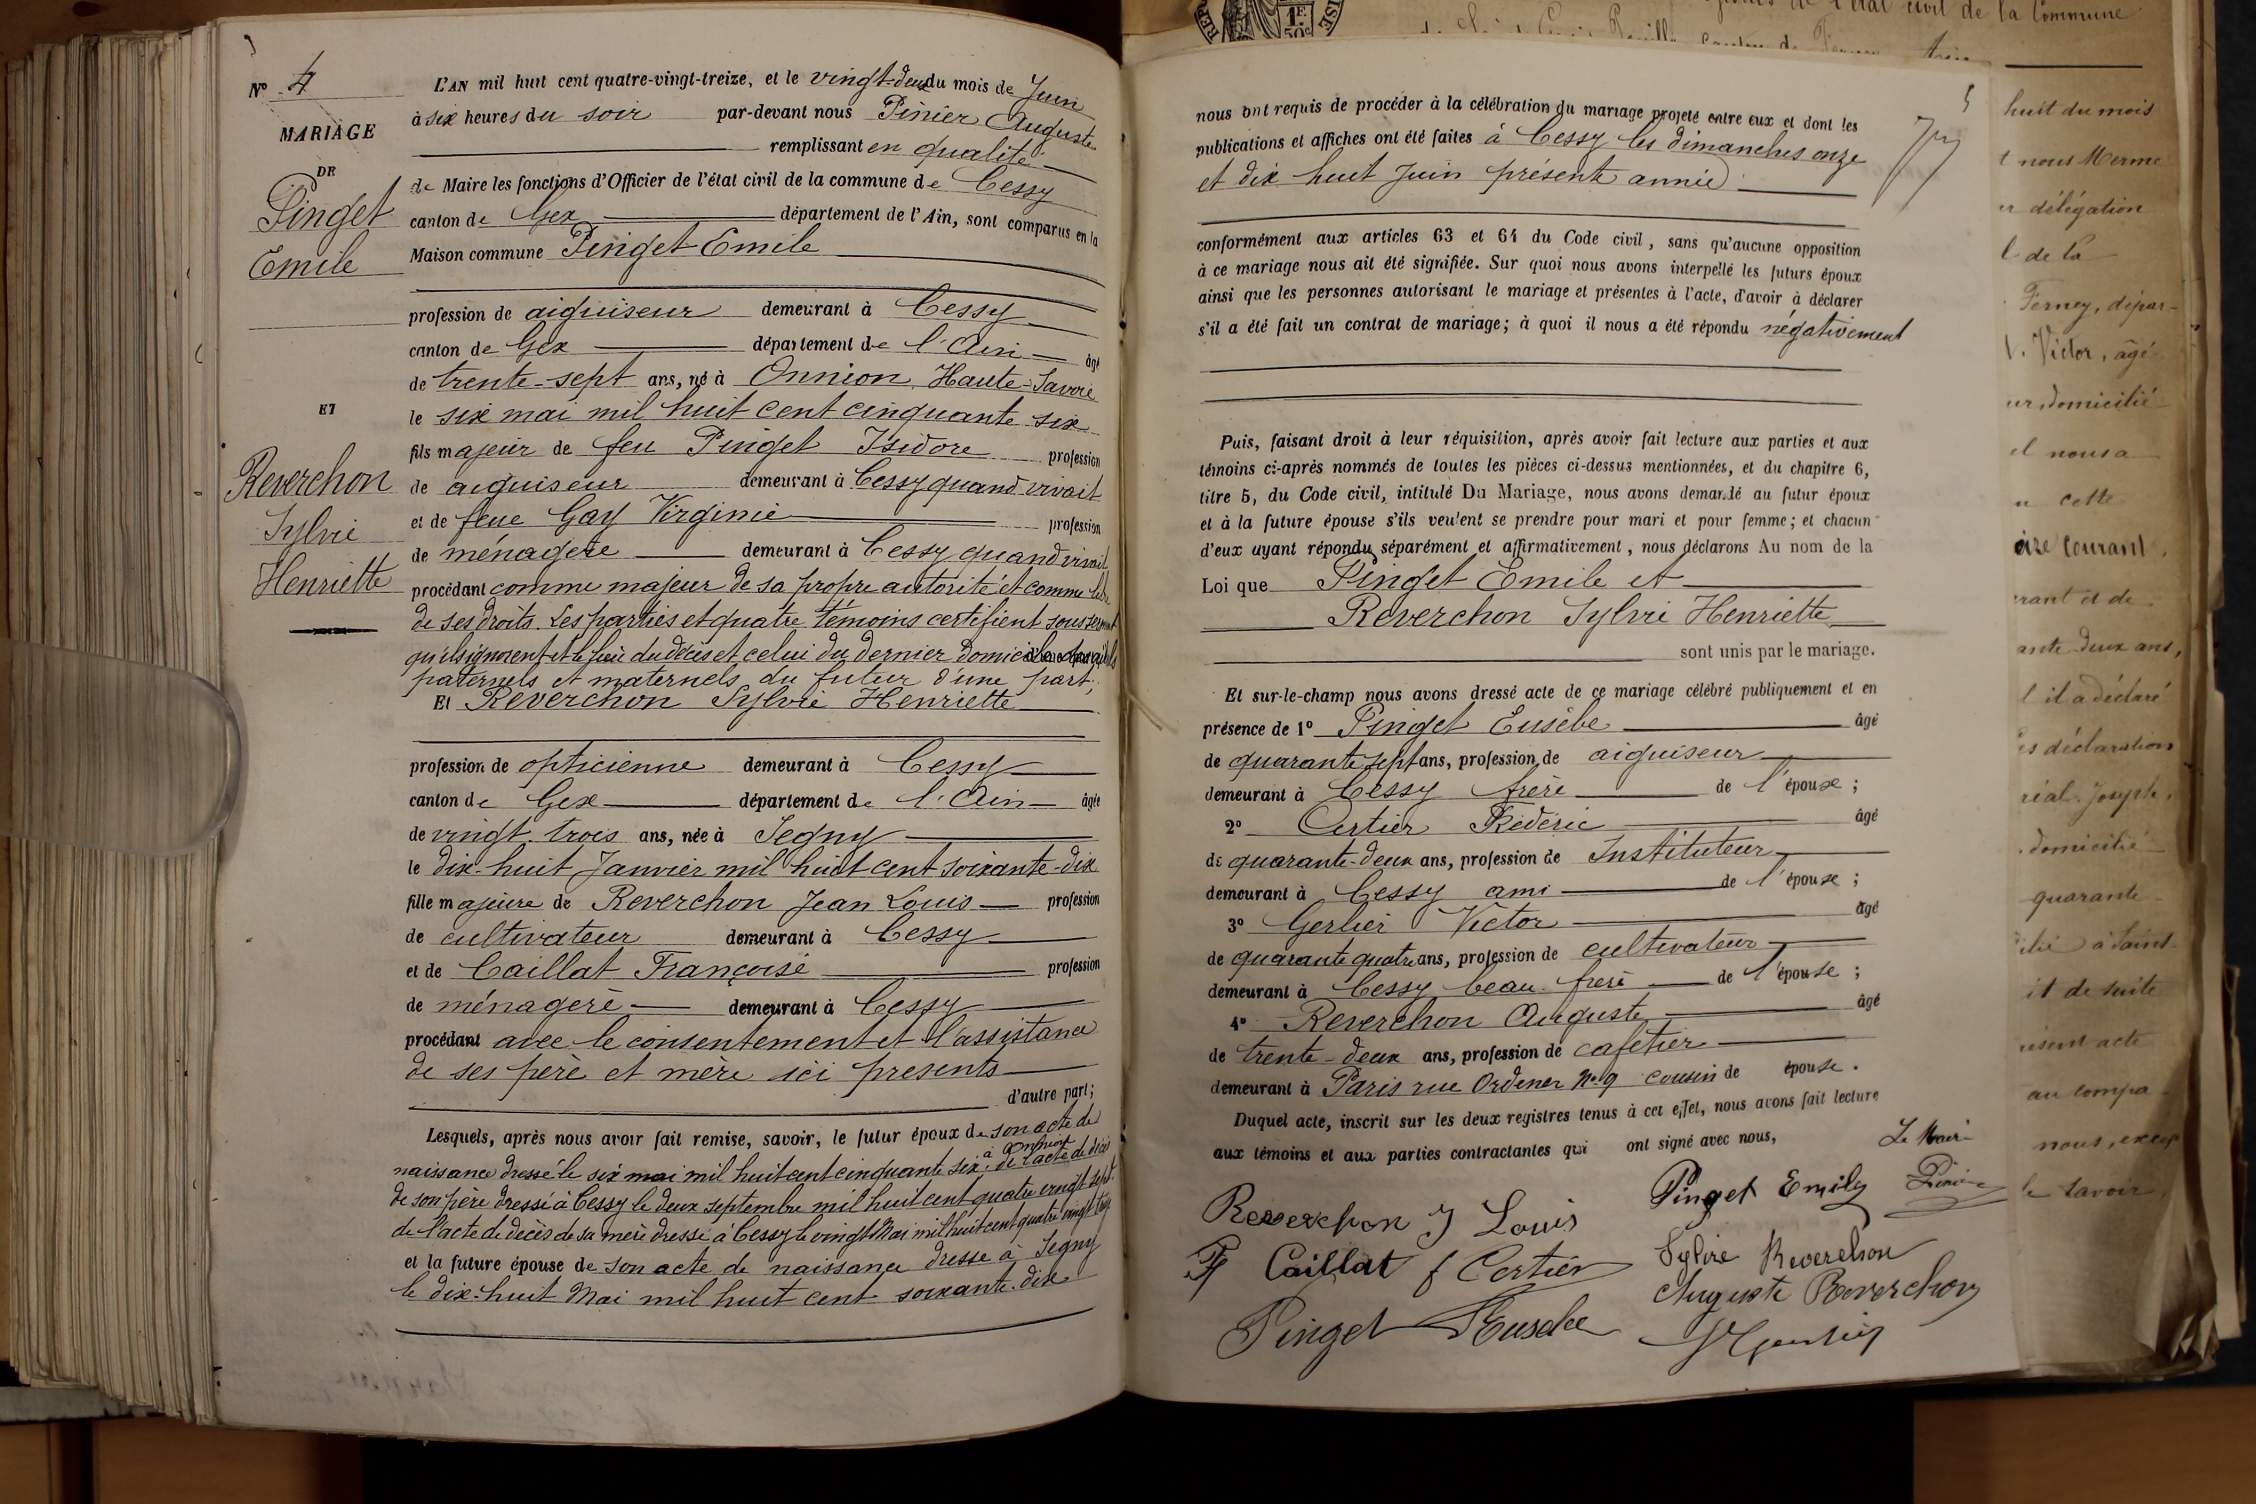 Nº 4
MARIAGE
DE
Pinget
Emile
ET
Reverchon
Sylvie
Henriette
L'AN mil huit cent quatre-vingt-treize, et le vingt-deux du mois de Juin
à six heures du soir par-devant nous Pinier Auguste
remplissant en qualité
de Maire les fonctions d'Officier de l'état civil de la commune de Cessy
canton de Gex département de l'Ain, sont comparus en la
Maison commune Pinget Emile
profession de aiguiseur demeurant à Cessy
canton de Gex département de l'Ain âgé
de trente-sept ans, né à Onnion Haute-Savoie
le six mai mil huit cent cinquante six
fils majeur de feu Pinget Isidore profession
de aiguiseur demeurant à Cessy quand vivait
et de feue Gay Virginie profession
de ménagère demeurant à Cessy quand vivait
procédant comme majeur de sa propre autorité et comme libre
de ses droits. Les parties et quatre témoins certifient sous serment
qu'ils ignorent et le lieu du décès et celui du dernier domicile des aïeuls
paternels et maternels du futur d'une part;
Et Reverchon Sylvie Henriette
profession de opticienne demeurant à Cessy
canton de Gex département de l'Ain âgée
de vingt trois ans, née à Segny
le dix-huit Janvier mil huit cent soixante-dix
fille majeure de Reverchon Jean Louis profession
de cultivateur demeurant à Cessy
et de Caillat Françoise profession
de ménagère demeurant à Cessy
procédant avec le consentement et l'assistance
de ses père et mère ici presents
d'autre part;
Lesquels, après nous avoir fait remise, savoir, le futur époux de son acte de
naissance dressé le six mai mil huit cent cinquante six à Onnion de l'acte de décès
de son père dressé à Cessy le deux septembre mil huit cent quatre vingt sept
de l'acte de décès de sa mère dressé à Cessy le vingt Mai mil huit cent quatre vingt treize
et la future épouse de son acte de naissance dressé à Segny
le dix-huit Mai mil huit cent soixante-dix
5
nous ont requis de procéder à la célébration du mariage projeté entre eux et dont les
publications et affiches ont été faites à Cessy les dimanches onze
et dix huit Juin présente année
conformément aux articles 63 et 64 du Code civil, sans qu'aucune opposition
à ce mariage nous ait été signifiée. Sur quoi nous avons interpellé les futurs époux
ainsi que les personnes autorisant le mariage et présentes à l'acte, d'avoir à déclarer
s'il a été fait un contrat de mariage; à quoi il nous a été répondu négativement
Puis, faisant droit à leur réquisition, après avoir fait lecture aux parties et aux
témoins ci-après nommés de toutes les pièces ci-dessus mentionnées, et du chapitre 6,
titre 5, du Code civil, intitulé Du Mariage, nous avons demandé au futur époux
et à la future épouse s'ils veulent se prendre pour mari et pour femme; et chacun
d'eux ayant répondu séparément et affirmativement, nous déclarons Au nom de la
Loi que Pinget Emile et
Reverchon Sylvie Henriette
sont unis par le mariage.
Et sur-le-champ nous avons dressé acte de ce mariage célébré publiquement et en
présence de 1º Pinget Eusèbe âgé
de quarante sept ans, profession de aiguiseur
demeurant à Cessy frère de l'épouse;
2º Certier Frédéric âgé
de quarante-deux ans, profession de Instituteur
demeurant à Cessy ami de l'épouse;
3º Gerlier Victor âgé
de quarante quatre ans, profession de cultivateur
demeurant à Cessy beau-frère de l'épouse;
4º Reverchon Auguste âgé
de trente-deux ans, profession de cafetier
demeurant à Paris rue Ordener Nº 9 cousin de épouse.
Duquel acte, inscrit sur les deux registres tenus à cet effet, nous avons fait lecture
aux témoins et aux parties contractantes qui ont signé avec nous,
Le Maire
Pinget Emile
Pinier
Reverchon J Louis
F Caillat
f Certier
Sylvie Reverchon
Auguste Reverchon
Pinget Eusebe
1F.
50c
état civil de la Commune
huit du mois
nous Merme
délégation
de la
Ferney, dépar-
Victor, âgé
domicilié
nous a
cette
courant
et de
deux ans,
il a déclaré
déclaration
Joseph,
domicilié
quarante
à Saint-
de suite
acte
au compa
nous, excep
le savoir,